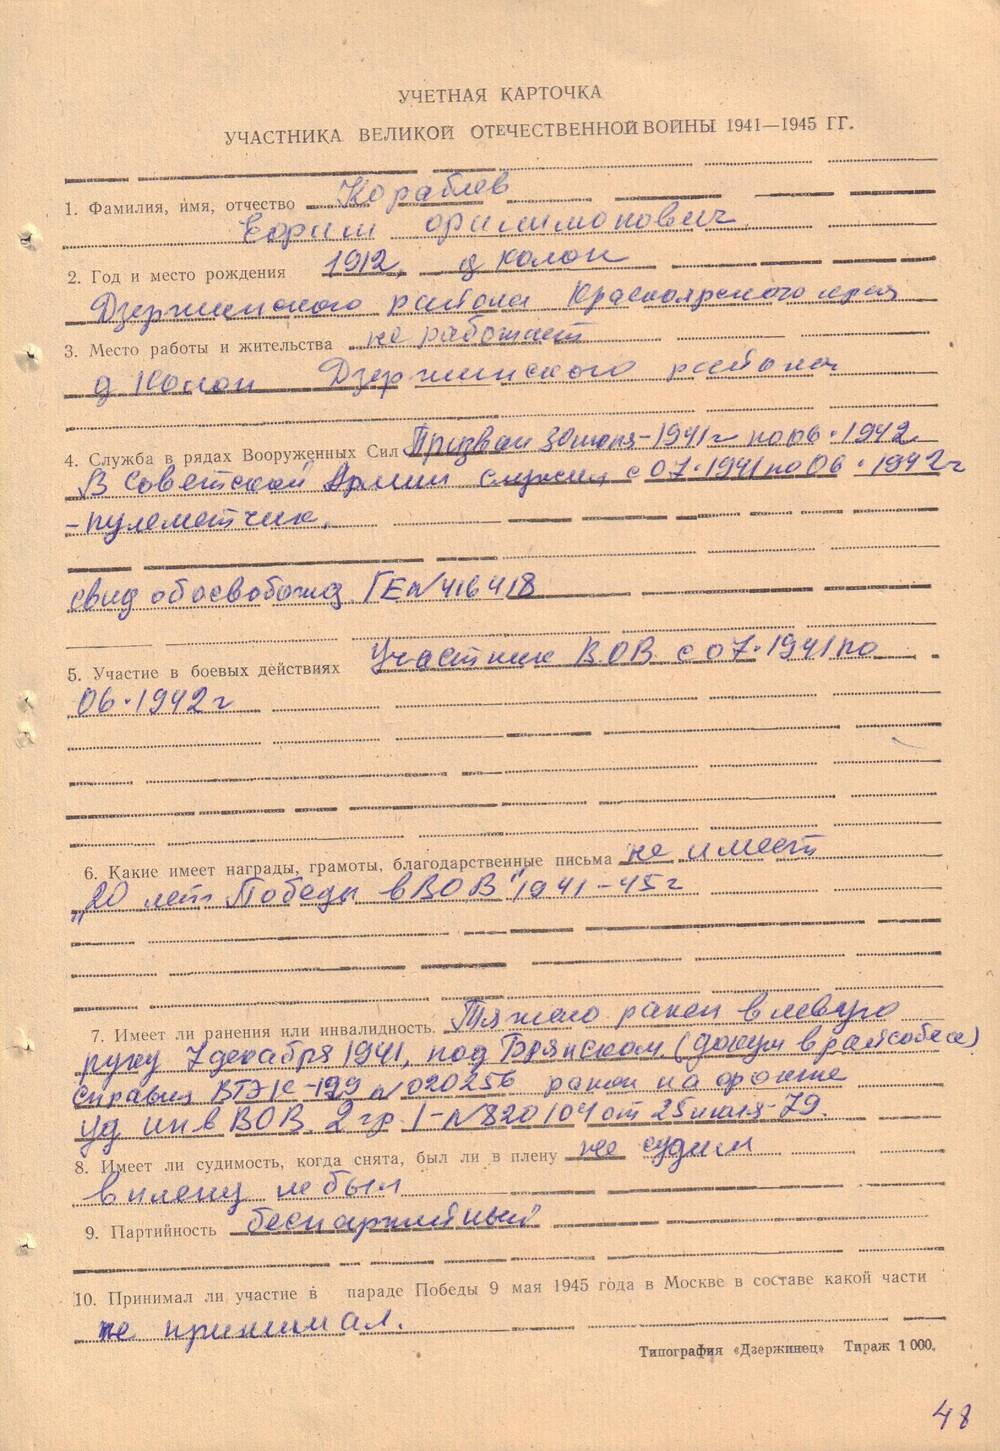 УЧЕТНАЯ КАРТОЧКА
УЧАСТНИКА ВЕЛИКОЙ ОТЕЧЕСТВЕННОЙ ВОЙНЫ 1941—1945 ГГ.
1. Фамилия, имя, отчество Кораблев
Ефрим Филимонович
2. Год и место рождения 1912, д Колон
Дзержинского района Красноярского края
3. Место работы и жительства не работает
д Колон Дзержинского района
4. Служба в рядах Вооруженных Сил Призван 30 июля-1941г по 06.1942
В Советской Армии служил с 07.1941 по 06.1942г
-пулеметчик.
свид об освобожд ГЕ № 416418
5. Участие в боевых действиях Участник В.О.В. с 07.1941 по
06.1942г
6. Какие имеет награды, грамоты, благодарственные письма не имеет
„20 лет Победы в ВОВ" 1941-45г
7. Имеет ли ранения или инвалидность. Тяжело ранен в левую
руку 7 декабря 1941, под Брянском. (докум в райсобесе)
справка ВТЭК-199 № 020256 ранен на фронте
уд инв ВОВ 2 гр. I-№ 820104 от 25 июля-79.
8. Имеет ли судимость, когда снята, был ли в плену не судим
в плену не был
9. Партийность беспартийный
10. Принимал ли участие в параде Победы 9 мая 1945 года в Москве в составе какой части
не принимал.
Типография «Дзержинец» Тираж 1 000.
48